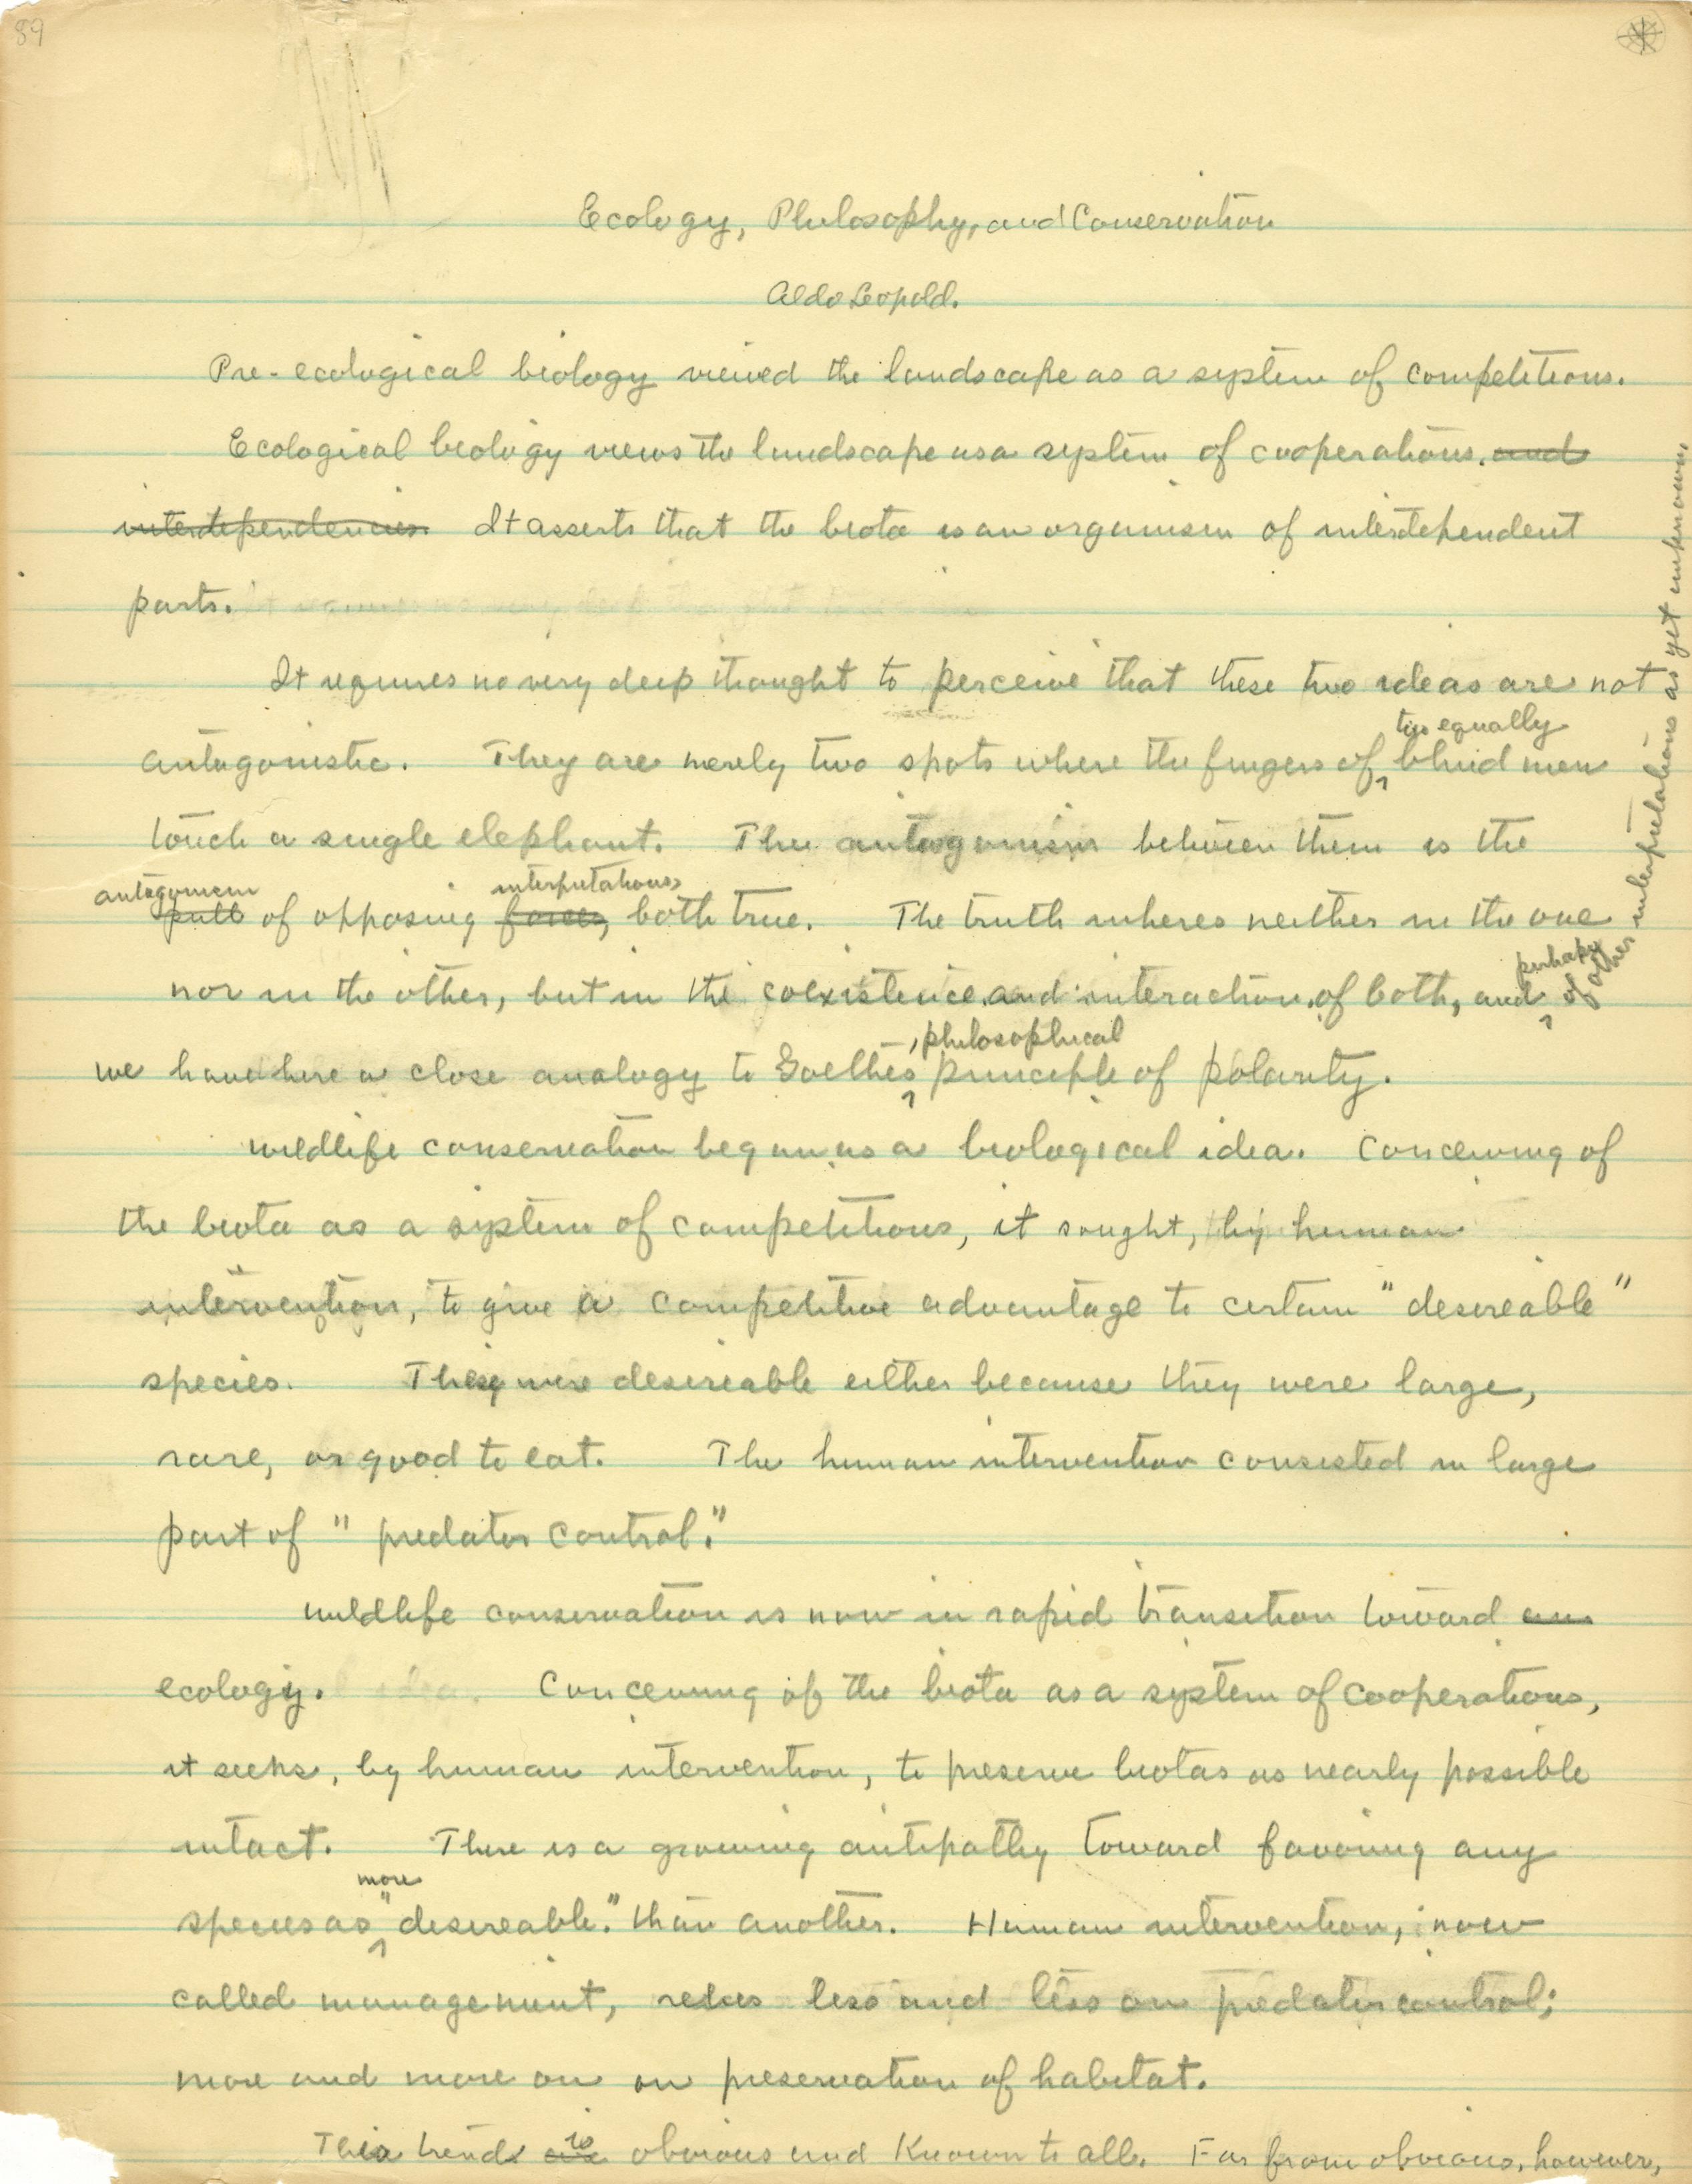 89
Ecology, Philosophy, and Conservation
Aldo Leopold.
Pre-ecological biology viewed the landscape as a system of competitions.
Ecological biology views the landscape as a system of cooperations. and
interdependencies It asserts that the biota is an organism of interdependent
parts.
It requires no very deep thought to perceive that these two ideas are not
two equally
antagonistic. They are merely two spots where the fingers of blind men
touch a single elephant. The antagonism between them is the
antagonism interpretations,
pull of opposing forces, both true. The truth inheres neither in the one
perhaps
nor in the other, but in the coexistence and interaction of both, and of other interpretations as yet unknown,
philosophical
we have here a close analogy to Goethe's principle of polarity.
Wildlife conservation began as a biological idea. Conceiving of
the biota as a system of competitions, it sought, by human
intervention, to give a competitive advantage to certain "desireable"
species. They were desireable either because they were large,
rare, or good to eat. The human intervention consisted in large
part of "predator control."
Wildlife conservation is now in rapid transition toward an
ecology. Conceiving of the biota as a system of cooperations,
it seeks, by human intervention, to preserve biotas as nearly possible
intact. There is a growing antipathy toward favoring any
more
species as "desireable." than another. Human intervention, now
called management, relies less and less on predator control;
more and more on on preservation of habitat.
is
This trend are obvious and known to all. Far from obvious, however,